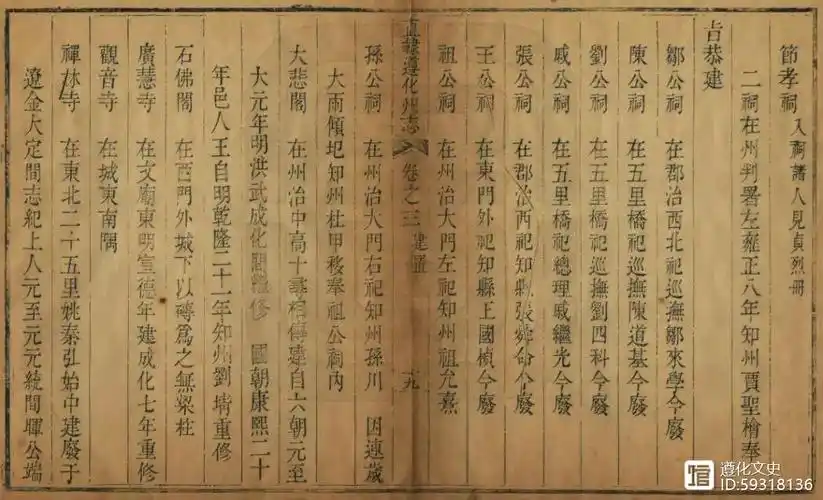 節孝祠 入祠諸人見貞烈冊
二祠在州判署左雍正八年知州賈聖檜奉
旨恭建
鄒公祠 在郡治西北祀巡撫鄒來學今廢
陳公祠 在五里橋祀巡撫陳道基今廢
劉公祠 在五里橋祀巡撫劉四科今廢
戚公祠 在五里橋祀總理戚繼光今廢
張公祠 在郡治西祀知縣張舜命今廢
王公祠 在東門外祀知縣王國楨今廢
祖公祠 在州治大門左祀知州祖允熹
直隸遵化州志 卷之三 建置 十九
孫公祠 在州治大門右祀知州孫川 因連歲
大雨傾圮知州杜甲移奉祖公祠內
大悲閣 在州治中高十尋相傳建自六朝元至
大元年明洪武成化間繼修 國朝康熙二十
年邑人王自明乾隆二十一年知州劉靖重修
石佛閣 在西門外城下以磚為之無梁柱
廣慧寺 在文廟東明宣德年建成化七年重修
觀音寺 在城東南隅
禪林寺 在東北二十五里姚秦弘始中建廢于
遼金大定間志紀上人元至元元統間暉公端
遵化文史
ID:59318136